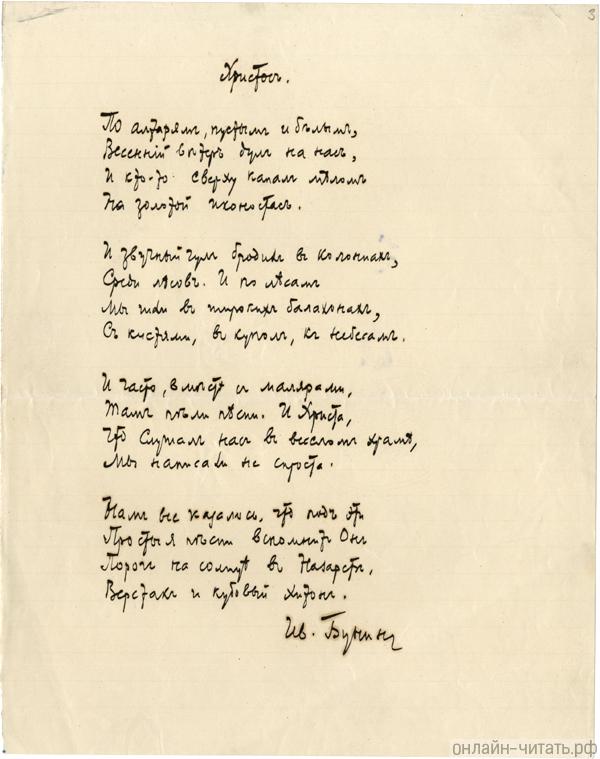 3
Христосъ.
По алтарямъ, пустымъ и бѣлымъ,
Весенній вѣтеръ дулъ на насъ,
И кто-то сверху капалъ мѣломъ
На золотой иконостасъ.
И звучный гулъ бродилъ въ колоннахъ,
Среди лѣсовъ. И по лѣсамъ
Мы шли въ широкихъ балахонахъ,
Съ кистями, въ куполъ, къ небесамъ.
И часто, вмѣстѣ съ малярами,
Тамъ пѣли пѣсни. И Христа,
Что слушалъ насъ въ веселомъ храмѣ,
Мы написали не спроста.
Намъ все казалось, что подъ эти
Простыя пѣсни вспомнитъ Онъ
Порогъ на солнцѣ въ Назаретѣ,
Верстакъ и кубовый хитонъ.
Ив. Бунинъ
онлайн-читать.рф